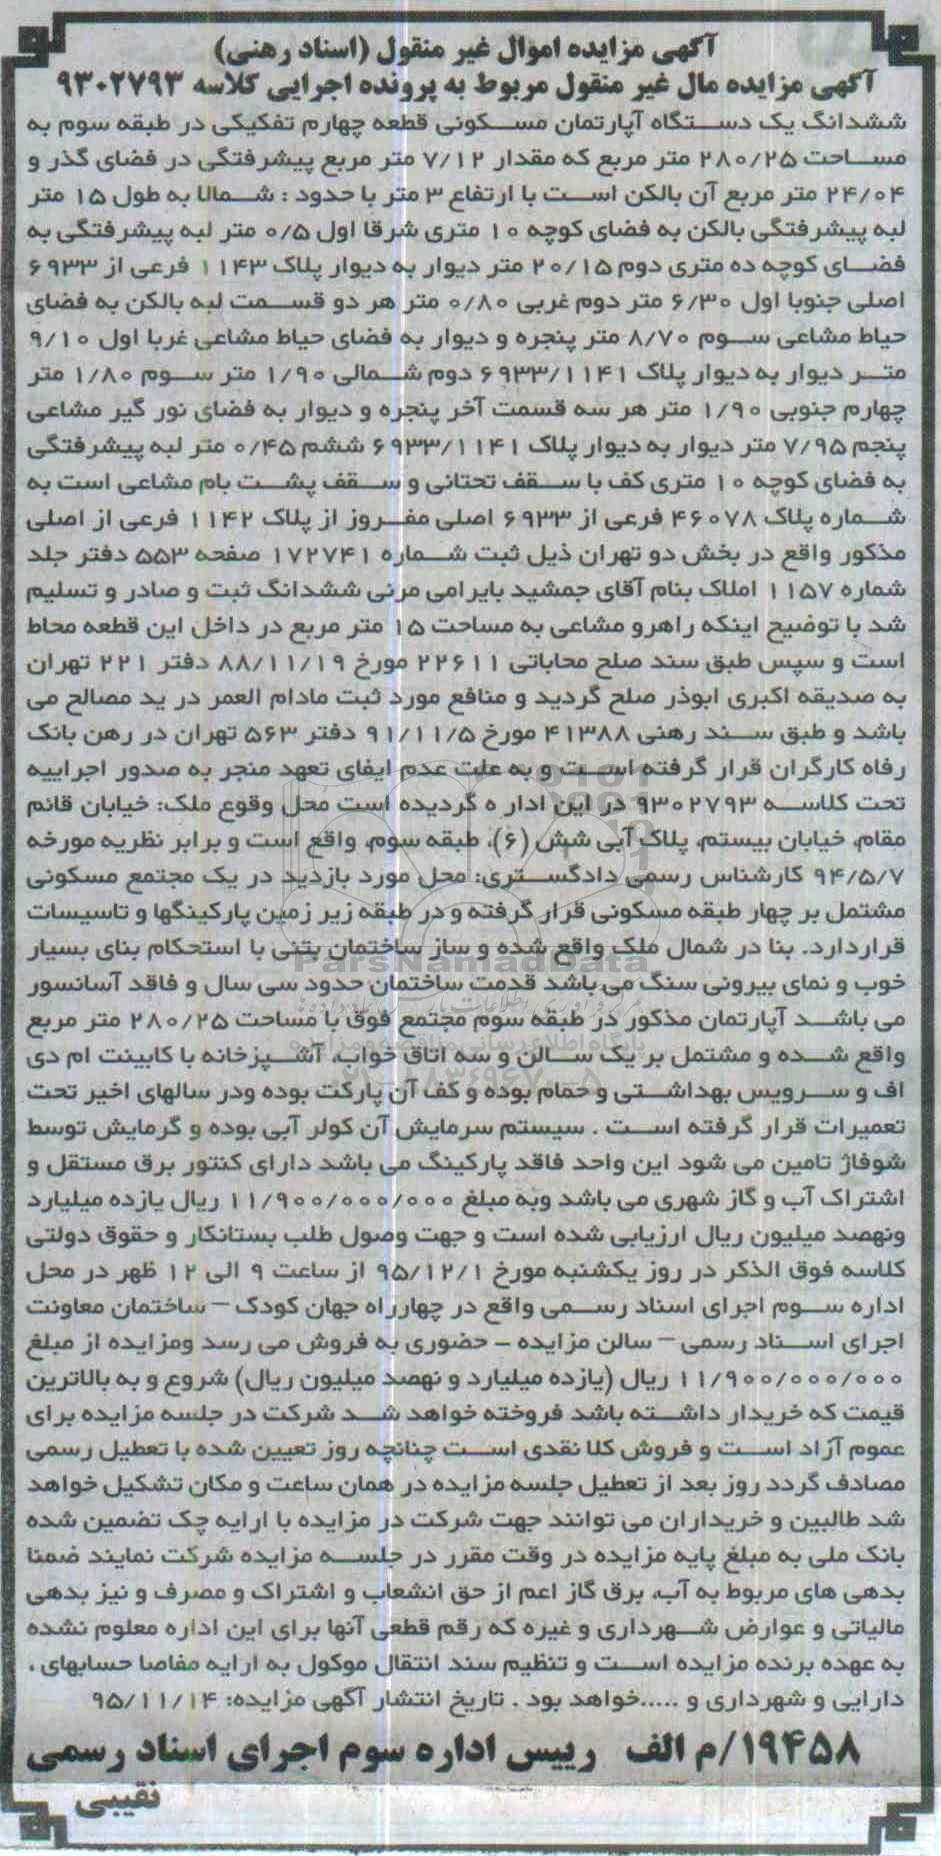 آگهی مزایده اموال غیر منقول (اسناد رهنی)
آگهی مزایده مال غیر منقول مربوط به پرونده اجرایی کلاسه ۹۳۰۲۷۹۳
ششدانگ یک دستگاه آپارتمان مسکونی قطعه چهارم تفکیکی در طبقه سوم به
مساحت ۲۸۰/۲۵ متر مربع که مقدار ۷/۱۲ متر مربع پیشرفتگی در فضای گذر و
۲۴/۰۴ متر مربع آن بالکن است با ارتفاع ۳ متر با حدود : شمالا به طول ۱۵ متر
لبه پیشرفتگی بالکن به فضای کوچه ۱۰ متری شرقا اول ۰/۵ متر لبه پیشرفتگی به
فضای کوچه ده متری دوم ۲۰/۱۵ متر دیوار به دیوار پلاک ۱۱۴۳ فرعی از ۶۹۳۳
اصلی جنوبا اول ۶/۳۰ متر دوم غربی ۰/۸۰ متر هر دو قسمت لبه بالکن به فضای
حیاط مشاعی سوم ۸/۷۰ متر پنجره و دیوار به فضای حیاط مشاعی غربا اول ۹/۱۰
متر دیوار به دیوار پلاک ۶۹۳۳/۱۱۴۱ دوم شمالی ۱/۹۰ متر سوم ۱/۸۰ متر
چهارم جنوبی ۱/۹۰ متر هر سه قسمت آخر پنجره و دیوار به فضای نور گیر مشاعی
پنجم ۷/۹۵ متر دیوار به دیوار پلاک ۶۹۳۳/۱۱۴۱ ششم ۰/۴۵ متر لبه پیشرفتگی
به فضای کوچه ۱۰ متری کف با سقف تحتانی و سقف پشت بام مشاعی است به
شماره پلاک ۴۶۰۷۸ فرعی از ۶۹۳۳ اصلی مفروز از پلاک ۱۱۴۲ فرعی از اصلی
مذکور واقع در بخش دو تهران ذیل ثبت شماره ۱۷۲۷۴۱ صفحه ۵۵۳ دفتر جلد
شماره ۱۱۵۷ املاک بنام آقای جمشید بایرامی مرنی ششدانگ ثبت و صادر و تسلیم
شد با توضیح اینکه راهرو مشاعی به مساحت ۱۵ متر مربع در داخل این قطعه محاط
است و سپس طبق سند صلح محاباتی ۲۲۶۱۱ مورخ ۸۸/۱۱/۱۹ دفتر ۲۲۱ تهران
به صدیقه اکبری ابوذر صلح گردید و منافع مورد ثبت مادام العمر در ید مصالح می
باشد و طبق سند رهنی ۴۱۳۸۸ مورخ ۹۱/۱۱/۵ دفتر ۵۶۳ تهران در رهن بانک
رفاه کارگران قرار گرفته است و به علت عدم ایفای تعهد منجر به صدور اجراییه
تحت کلاسه ۹۳۰۲۷۹۳ در این ادار ه گردیده است محل وقوع ملک: خیابان قائم
مقام، خیابان بیستم، پلاک آبی شش (۶)، طبقه سوم، واقع است و برابر نظریه مورخه
۹۴/۵/۷ کارشناس رسمی دادگستری: محل مورد بازدید در یک مجتمع مسکونی
مشتمل بر چهار طبقه مسکونی قرار گرفته و در طبقه زیر زمین پارکینگها و تاسیسات
قراردارد. بنا در شمال ملک واقع شده و ساز ساختمان بتنی با استحکام بنای بسیار
خوب و نمای بیرونی سنگ می باشد قدمت ساختمان حدود سی سال و فاقد آسانسور
می باشد آپارتمان مذکور در طبقه سوم مجتمع فوق با مساحت ۲۸۰/۲۵ متر مربع
واقع شده و مشتمل بر یک سالن و سه اتاق خواب، آشپزخانه با کابینت ام دی
اف و سرویس بهداشتی و حمام بوده و کف آن پارکت بوده ودر سالهای اخیر تحت
تعمیرات قرار گرفته است . سیستم سرمایش آن کولر آبی بوده و گرمایش توسط
شوفاژ تامین می شود این واحد فاقد پارکینگ می باشد دارای کنتور برق مستقل و
اشتراک آب و گاز شهری می باشد وبه مبلغ ۱۱/۹۰۰/۰۰۰/۰۰۰ ریال یازده میلیارد
ونهصد میلیون ریال ارزیابی شده است و جهت وصول طلب بستانکار و حقوق دولتی
کلاسه فوق الذکر در روز یکشنبه مورخ ۹۵/۱۲/۱ از ساعت ۹ الی ۱۲ ظهر در محل
اداره سوم اجرای اسناد رسمی واقع در چهارراه جهان کودک – ساختمان معاونت
اجرای اسناد رسمی – سالن مزایده – حضوری به فروش می رسد ومزایده از مبلغ
۱۱/۹۰۰/۰۰۰/۰۰۰ ریال (یازده میلیارد و نهصد میلیون ریال) شروع و به بالاترین
قیمت که خریدار داشته باشد فروخته خواهد شد شرکت در جلسه مزایده برای
عموم آزاد است و فروش کلا نقدی است چنانچه روز تعیین شده با تعطیل رسمی
مصادف گردد روز بعد از تعطیل جلسه مزایده در همان ساعت و مکان تشکیل خواهد
شد طالبین و خریداران می توانند جهت شرکت در مزایده با ارایه چک تضمین شده
بانک ملی به مبلغ پایه مزایده در وقت مقرر در جلسه مزایده شرکت نمایند ضمنا
بدهی های مربوط به آب، برق گاز اعم از حق انشعاب و اشتراک و مصرف و نیز بدهی
مالیاتی و عوارض شهرداری و غیره که رقم قطعی آنها برای این اداره معلوم نشده
به عهده برنده مزایده است و تنظیم سند انتقال موکول به ارایه مفاصا حسابهای ،
دارایی و شهرداری و .....خواهد بود . تاریخ انتشار آگهی مزایده: ۹۵/۱۱/۱۴
۱۹۴۵۸/م الف رییس اداره سوم اجرای اسناد رسمی
نقیبی
ParsNamadData
پایگاه اطلاع رسانی مناقصه و مزایده